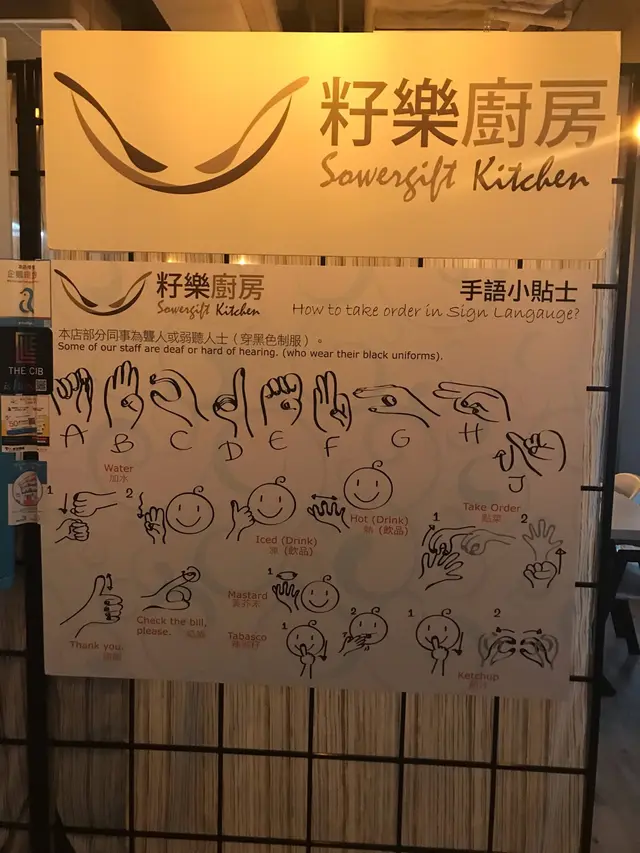 籽樂廚房
Sowergift Kitchen
籽樂廚房
Sowergift Kitchen
手語小貼士
How to take order in Sign Langauge?
本店部分同事為聾人或弱聽人士（穿黑色制服）。
Some of our staff are deaf or hard of hearing. (who wear their black uniforms).
A B C D E F G H J
Water
加水
1 2
Iced (Drink)
凍 (飲品)
Hot (Drink)
熱 (飲品)
Take Order
點菜
1 2
Thank you.
Check the bill,
please.
Mastard
黃芥末
1
Tabasco
1 2
Ketchup
1 2
THE CIB